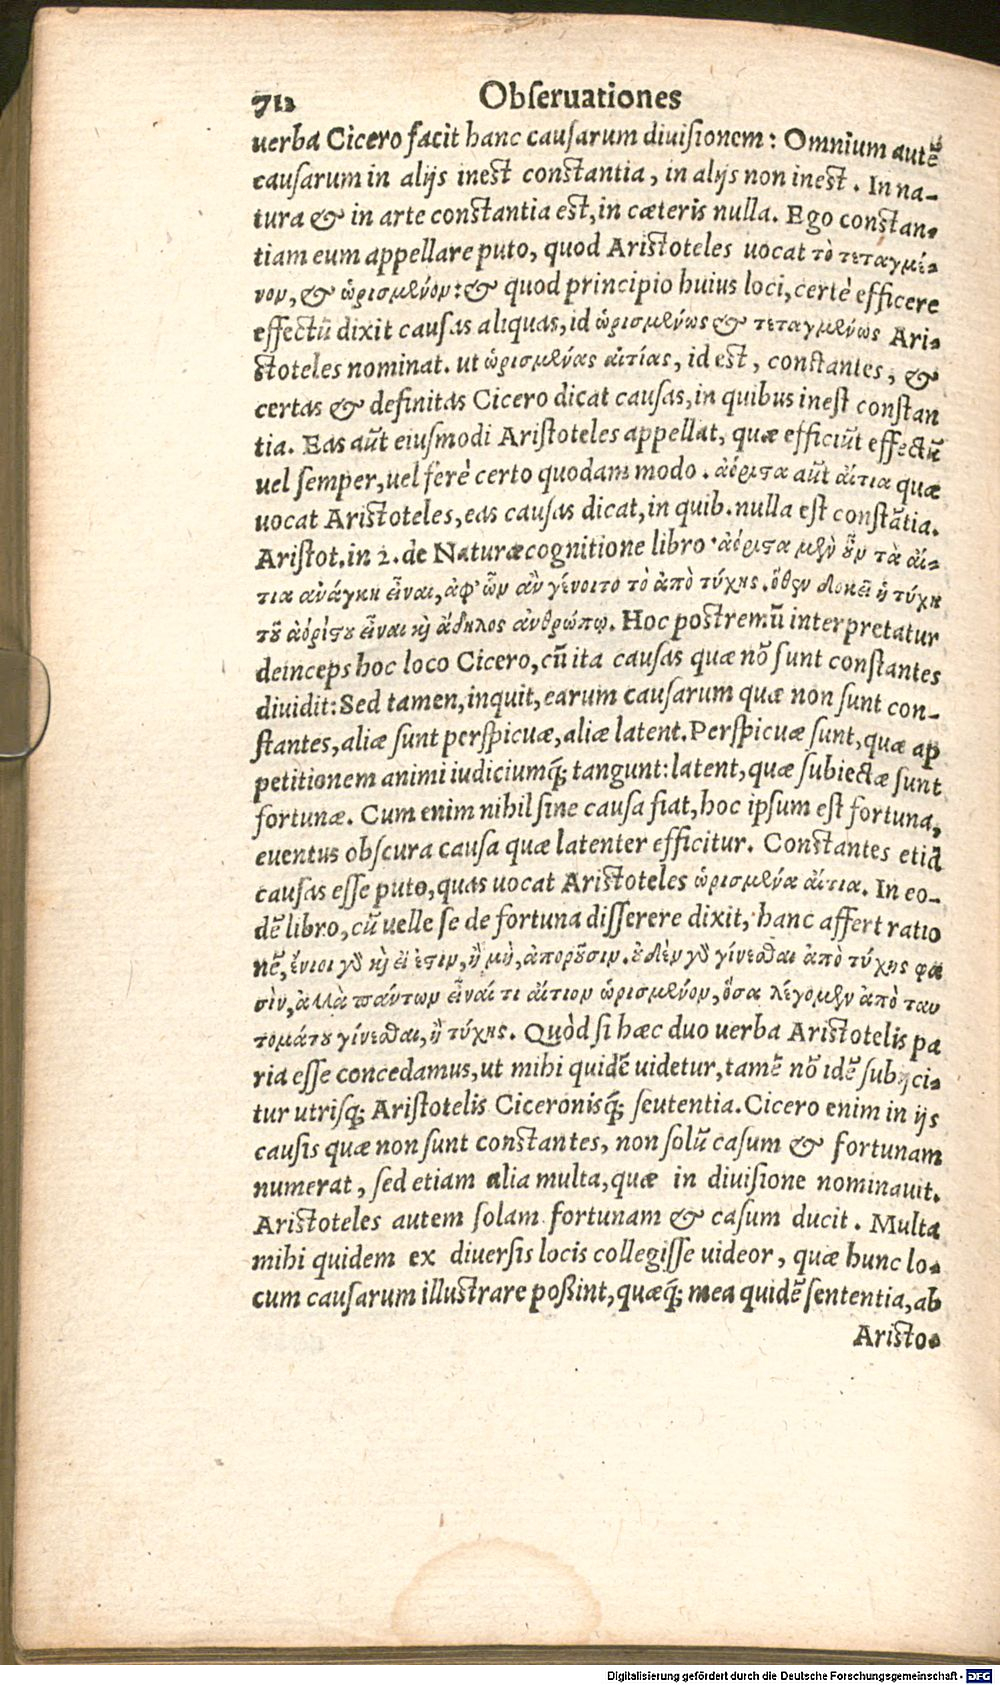 712 Obſeruationes
uerba Cicero facit hanc cauſarum diuiſionem: Omnium autē
cauſarum in alijs ineſt conſtantia, in alijs non ineſt. In na-
tura & in arte conſtantia eſt, in cæteris nulla. Ego conſtan-
tiam eum appellare puto, quod Ariſtoteles uocat τὸ τεταγμέ-
νον, & ὡρισμένον: & quod principio huius loci, certè efficere
effectū dixit cauſas aliquas, id ὡρισμένως & τεταγμένως Ari-
ſtoteles nominat. ut ὡρισμένας αἰτίας, id eſt, conſtantes, &
certas & definitas Cicero dicat cauſas, in quibus ineſt conſtan
tia. Eas aūt eiuſmodi Ariſtoteles appellat, quæ efficiūt effectū
uel ſemper, uel ferè certo quodam modo. ἀόριϛα aūt αἴτια quæ
uocat Ariſtoteles, eas cauſas dicat, in quib. nulla eſt conſtātia.
Ariſtot. in 2. de Naturæ cognitione libro· ἀόριϛα μὲν οὖν τὰ αἴ-
τια ἀνάγκη εἶναι, ἀφ' ὧν ἂν γένοιτο τὸ ἀπὸ τύχης. ὅθεν δοκεῖ ἡ τύχη
τοῦ ἀορίϛου εἶναι καὶ ἄδηλος ἀνθρώπῳ. Hoc poſtremū interpretatur
deinceps hoc loco Cicero, cū ita cauſas quæ nō ſunt conſtantes
diuidit: Sed tamen, inquit, earum cauſarum quæ non ſunt con-
ſtantes, aliæ ſunt perſpicuæ, aliæ latent. Perſpicuæ ſunt, quæ ap
petitionem animi iudiciumq́; tangunt: latent, quæ ſubiectæ ſunt
fortunæ. Cum enim nihil ſine cauſa fiat, hoc ipſum eſt fortuna,
euentus obſcura cauſa quæ latenter efficitur. Conſtantes etiā
cauſas eſſe puto, quas uocat Ariſtoteles ὡρισμένα αἴτια. In eo-
dē libro, cū uelle ſe de fortuna diſſerere dixit, hanc affert ratio
nē, ἔνιοι γὰρ καὶ εἰ ἔϛιν, ἢ μὴ, ἀποροῦσιν. οὐδὲν γὰρ γίνεσθαι ἀπὸ τύχης φα
σὶν, ἀλλὰ πάντων εἶναί τι αἴτιον ὡρισμένον, ὅσα λέγομεν ἀπὸ ταυ
τομάτου γίνεσθαι, ἢ τύχης. Quòd ſi hæc duo uerba Ariſtotelis pa
ria eſſe concedamus, ut mihi quidē uidetur, tamē nō idē ſubijci-
tur utriſq; Ariſtotelis Ciceronisq́; ſeutentia. Cicero enim in ijs
cauſis quæ non ſunt conſtantes, non ſolū caſum & fortunam
numerat, ſed etiam alia multa, quæ in diuiſione nominauit.
Ariſtoteles autem ſolam fortunam & caſum ducit. Multa
mihi quidem ex diuerſis locis collegiſſe uideor, quæ hunc lo-
cum cauſarum illuſtrare poßint, quæq́; mea quidē ſententia, ab
Ariſto-
Digitalisierung gefördert durch die Deutsche Forschungsgemeinschaft - DFG